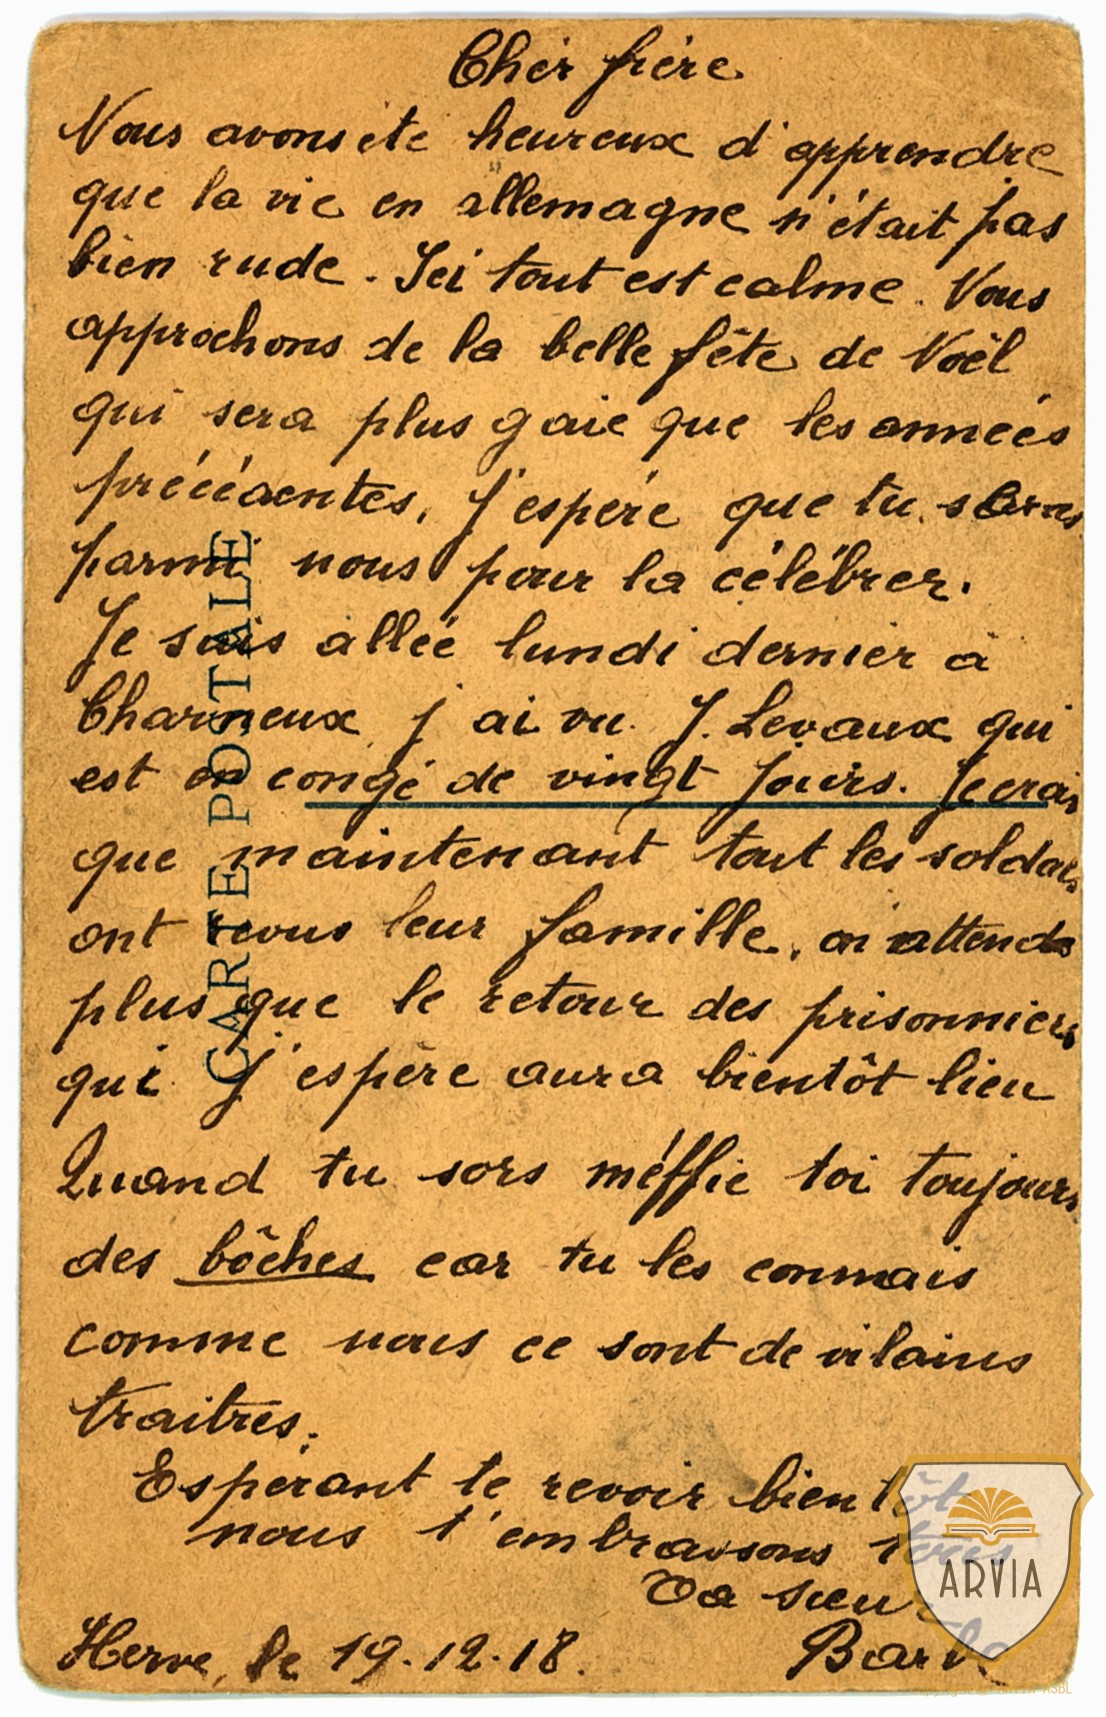 Cher frère
Nous avons ete heureux d'apprendre
que la vie en allemagne n'était pas
bien rude. Ici tout est calme. Nous
approchons de la belle fête de Noël
qui sera plus gaie que les années
précédentes, J'espére que tu seras
parmi nous pour la célébrer.
Je suis allée lundi dernier à
Charneux j'ai vu J. Levaux qui
est en congé de vingt jours. Je crois
que maintenant tout les soldats
ont revus leur famille, on attends
plus que le retour des prisonniers
qui j'espère aura bientôt lieu
Quand tu sors méffie toi toujours
des bôches car tu les connais
comme nous ce sont de vilains
traitres.
Espérant te revoir bientôt
nous t'embrassons tous
Ta sœur
Herve, le 19.12.18.
CARTE POSTALE
ARVIA